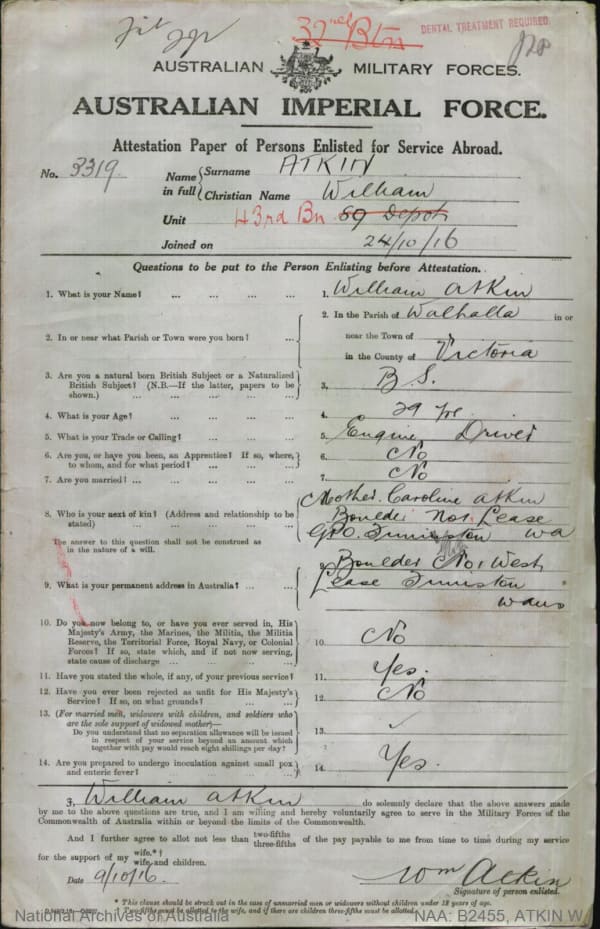 32nd Btn
DENTAL TREATMENT REQUIRED
AUSTRALIAN MILITARY FORCES.
AUSTRALIAN IMPERIAL FORCE.
Attestation Paper of Persons Enlisted for Service Abroad.
No. 3319. Name in full { Surname ATKIN
Christian Name William
Unit 43rd Bn 89 Depot
Joined on 24/10/16
Questions to be put to the Person Enlisting before Attestation.
1. What is your Name? ... ... ... ... 1. William Atkin
2. In or near what Parish or Town were you born? ... 2. In the Parish of Walhalla in or
near the Town of
in the County of Victoria
3. Are you a natural born British Subject or a Naturalized
British Subject? (N.B.—If the latter, papers to be
shown.) ... ... ... ... 3. B S.
4. What is your Age? ... ... ... ... 4. 29 yrs
5. What is your Trade or Calling? ... ... ... 5. Engine Driver
6. Are you, or have you been, an Apprentice? If so, where,
to whom, and for what period? ... ... ... 6. No
7. Are you married? ... ... ... ... 7. No
8. Who is your next of kin? (Address and relationship to be
stated) ... ... ... ... 8. Mother. Caroline Atkin
Boulder No1 Lease
GPO. WA
The answer to this question shall not be construed as
in the nature of a will.
9. What is your permanent address in Australia? ... ... 9. Boulder No, 1 West
Lease
10. Do you now belong to, or have you ever served in, His
Majesty's Army, the Marines, the Militia, the Militia
Reserve, the Territorial Force, Royal Navy, or Colonial
Forces? If so, state which, and if not now serving,
state cause of discharge ... ... ... 10. No
11. Have you stated the whole, if any, of your previous service? 11. Yes.
12. Have you ever been rejected as unfit for His Majesty's
Service? If so, on what grounds? ... ... 12. No
13. (For married men, widowers with children, and soldiers who
are the sole support of widowed mother)—
Do you understand that no separation allowance will be issued
in respect of your service beyond an amount which
together with pay would reach eight shillings per day? 13. ✓
14. Are you prepared to undergo inoculation against small pox
and enteric fever? ... ... ... ... 14. Yes.
I, William Atkin do solemnly declare that the above answers made
by me to the above questions are true, and I am willing and hereby voluntarily agree to serve in the Military Forces of the
Commonwealth of Australia within or beyond the limits of the Commonwealth.
And I further agree to allot not less than two-fifths three-fifths of the pay payable to me from time to time during my service
for the support of my wife.*† wife and children.
Date 9/10/16. Wm Atkin
Signature of person enlisted.
* This clause should be struck out in the case of unmarried men or widowers without children under 18 years of age.
† Two-fifths must be allotted to the wife, and if there are children three-fifths must be allotted.
National Archives of Australia NAA: B2455, ATKIN W